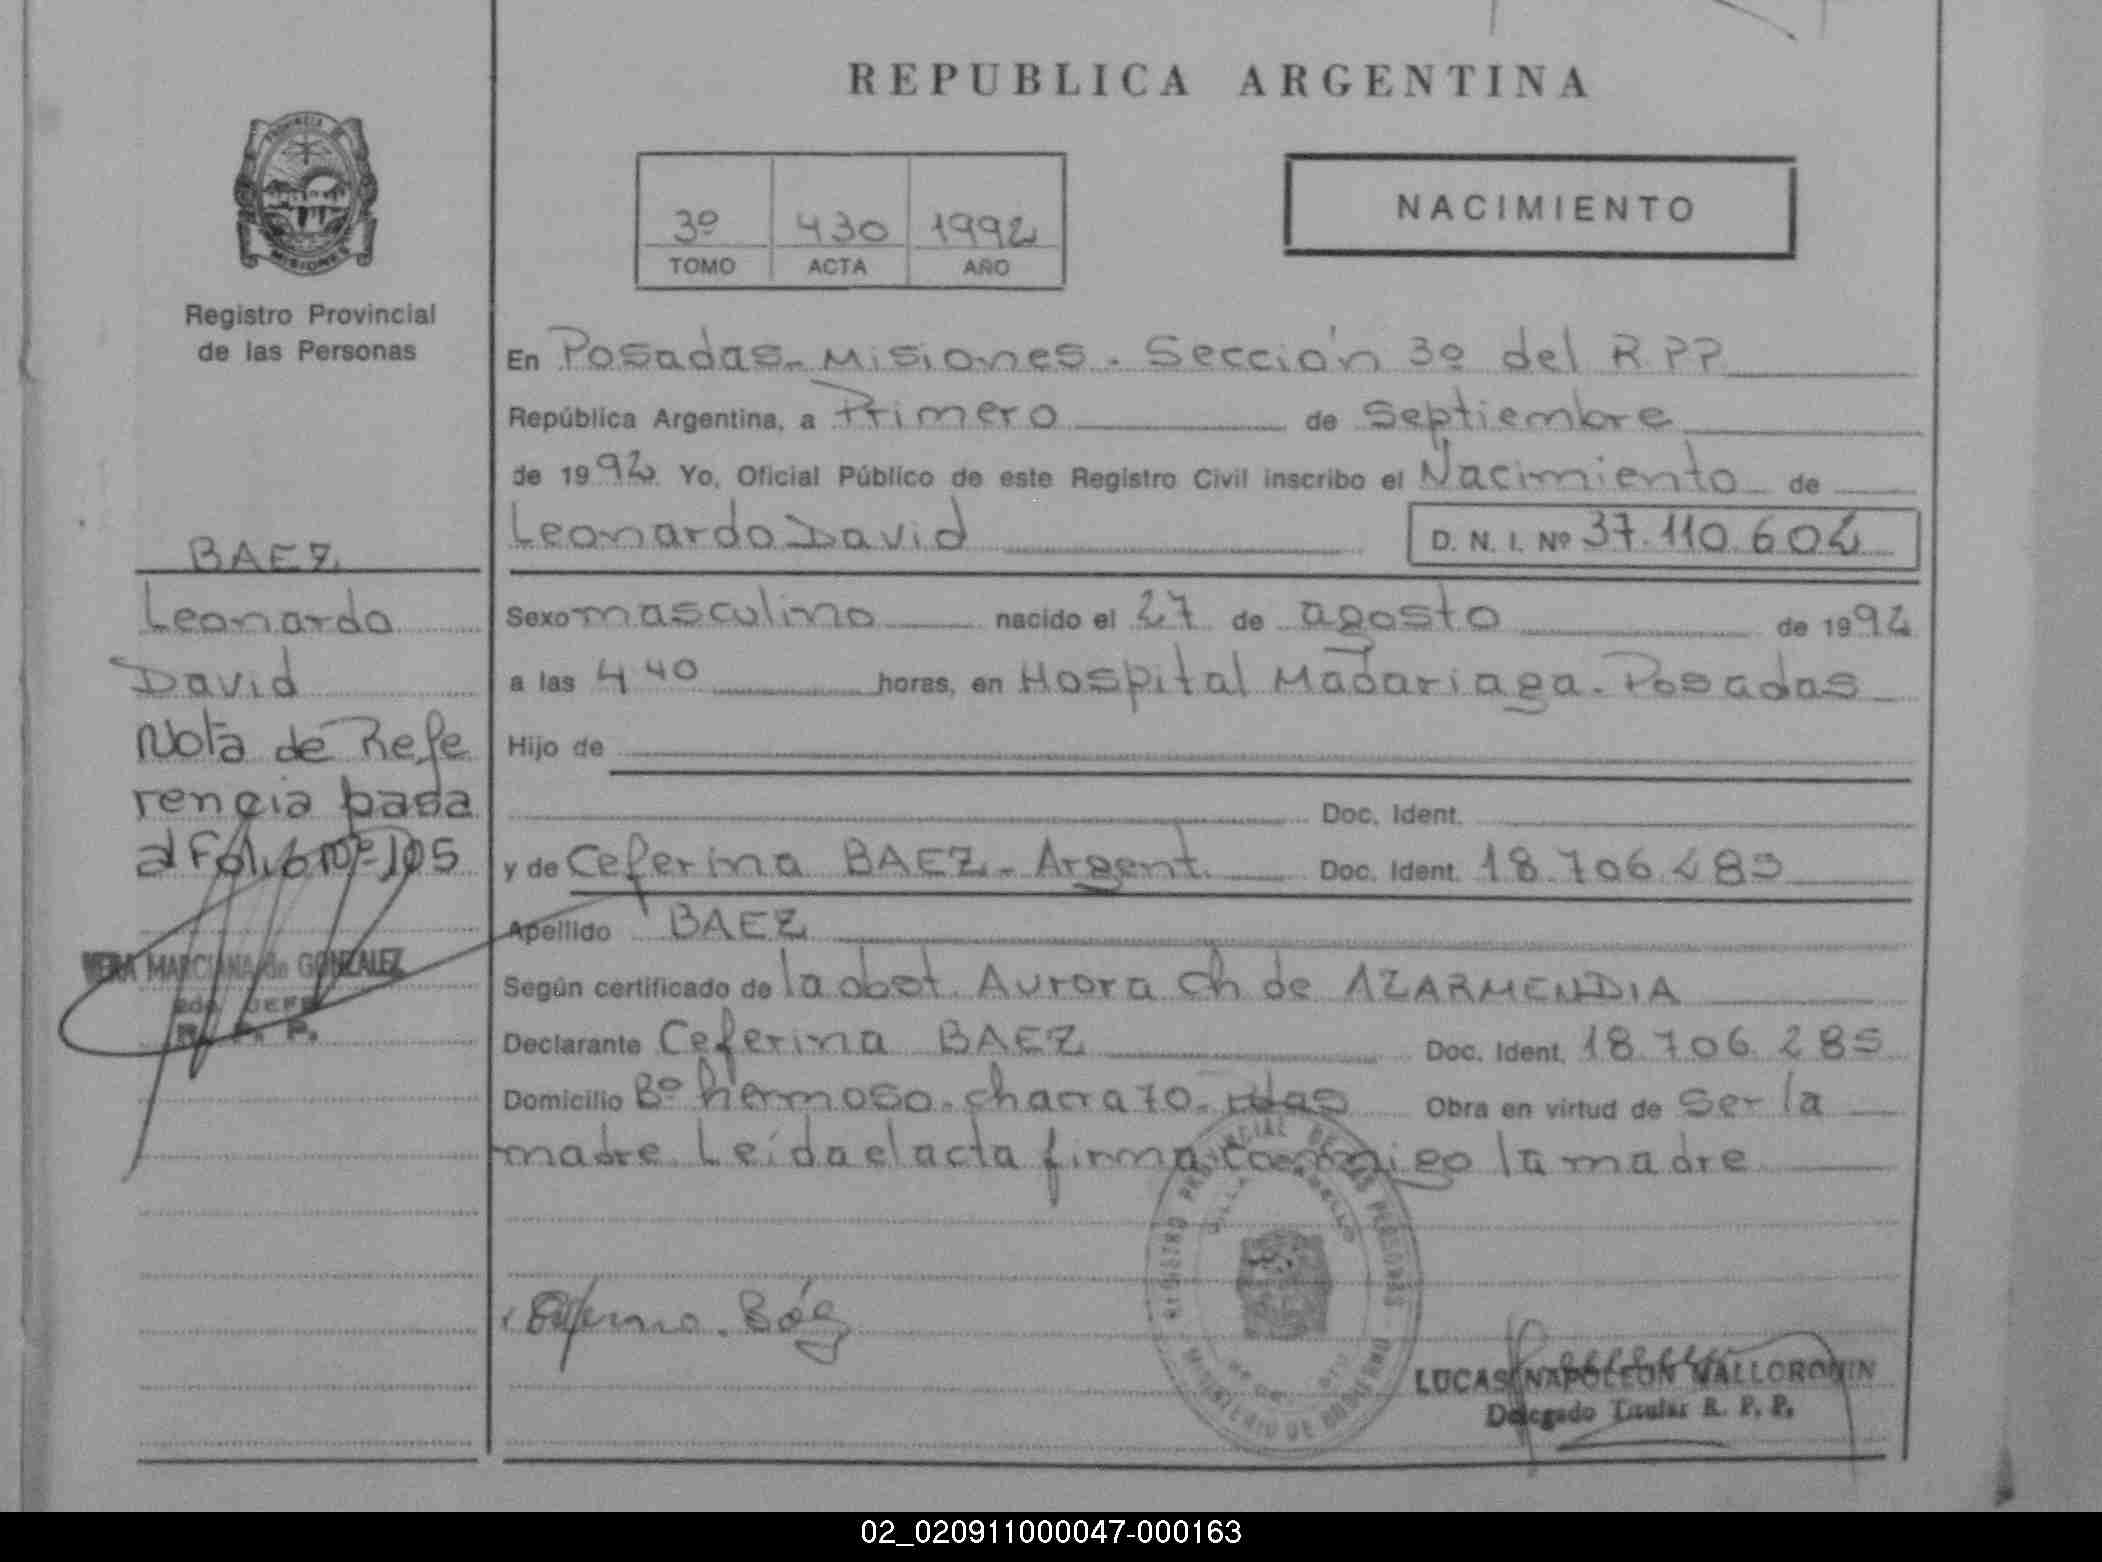 REPUBLICA ARGENTINA
PROVINCIA DE
MISIONES
Registro Provincial
de las Personas
3º 430 1992
TOMO ACTA AÑO
NACIMIENTO
En Posadas - Misiones. Sección 3º del R.P.P.
República Argentina, a Primero de Septiembre
de 1992. Yo, Oficial Público de este Registro Civil inscribo el Nacimiento de
Leonardo David D. N. I. Nº 37.110.602
Sexo masculino nacido el 27 de agosto de 1992
a las 4 40 horas, en Hospital Madariaga. Posadas
Hijo de
Doc. Ident.
y de Ceferina BAEZ - Argent. Doc. Ident. 18.706.285
Apellido BAEZ
Según certificado de la obst. Aurora Ch de AZARMENDIA
Declarante Ceferina BAEZ Doc. Ident. 18.706.285
Domicilio Bº hermoso. chacra 70. Pdas Obra en virtud de Ser la
madre. Leída el acta firma conmigo la madre
BAEZ
Leonardo
David
Nota de Refe
rencia pasa
al Folio Nº 105
VERA MARCIANA de GONZALEZ
2do. JEFE
R. P. P.
REGISTRO PROVINCIAL DE LAS PERSONAS
MINISTERIO DE GOBIERNO
LUCAS NAPOLEON MALLORQUIN
Delegado Titular R. P. P.
02_020911000047-000163